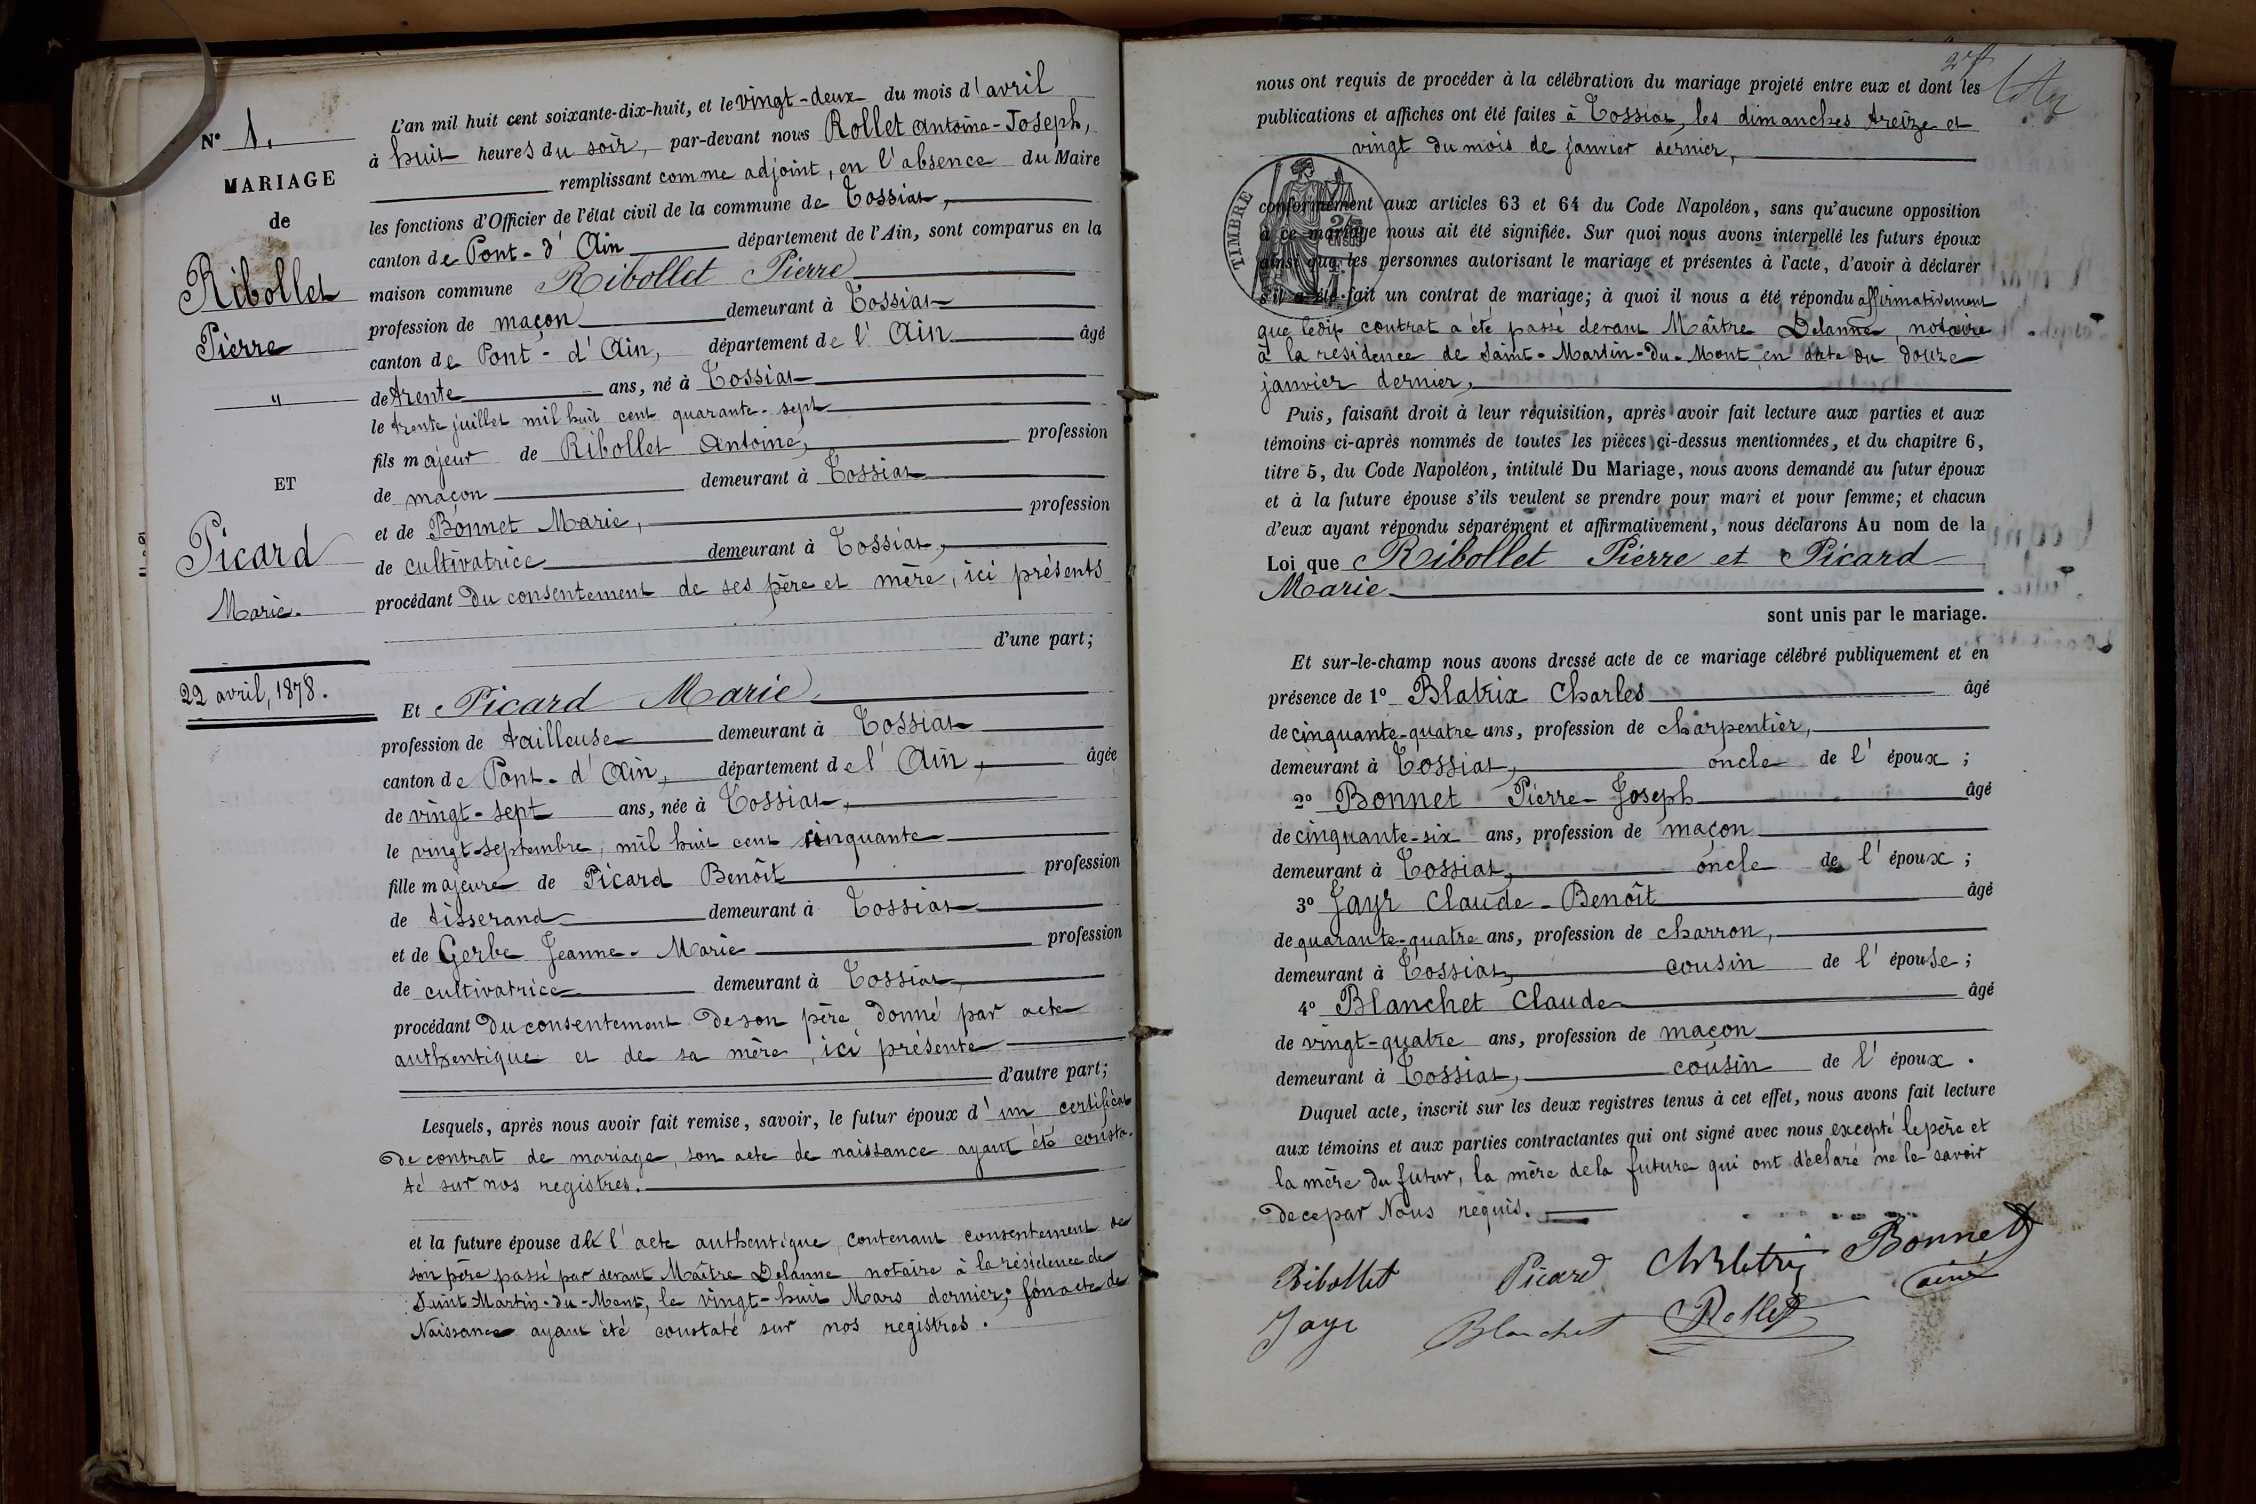 N° 1.
MARIAGE
de
Ribollet
Pierre
"
ET
Picard
Marie.
22 avril, 1878.
L'an mil huit cent soixante-dix-huit, et le vingt-deux du mois d'avril
à huit heures du soir, par-devant nous Rollet Antoine-Joseph,
remplissant comme adjoint, en l'absence du Maire
les fonctions d'Officier de l'état civil de la commune de Tossiat,
canton de Pont-d'Ain département de l'Ain, sont comparus en la
maison commune Ribollet Pierre
profession de maçon demeurant à Tossiat
canton de Pont-d'Ain, département de l'Ain âgé
de trente ans, né à Tossiat
le trente juillet mil huit cent quarante-sept
fils majeur de Ribollet Antoine, profession
de maçon demeurant à Tossiat
et de Bonnet Marie, profession
de cultivatrice demeurant à Tossiat,
procédant du consentement de ses père et mère, ici présents
d'une part;
Et Picard Marie
profession de tailleuse demeurant à Tossiat
canton de Pont-d'Ain, département de l'Ain, âgée
de vingt-sept ans, née à Tossiat,
le vingt septembre, mil huit cent cinquante
fille majeure de Picard Benoît profession
de tisserand demeurant à Tossiat
et de Gerbe Jeanne-Marie profession
de cultivatrice demeurant à Tossiat,
procédant du consentement de son père donné par acte
authentique et de sa mère, ici présente
d'autre part;
Lesquels, après nous avoir fait remise, savoir, le futur époux d'un certificat
de contrat de mariage, son acte de naissance ayant été consta-
té sur nos registres.
et la future épouse de l'acte authentique, contenant consentement de
son père passé par devant Maître Delanne notaire à la résidence de
Saint-Martin-du-Mont, le vingt-huit Mars dernier; son acte de
Naissance ayant été constaté sur nos registres.
nous ont requis de procéder à la célébration du mariage projeté entre eux et dont les
publications et affiches ont été faites à Tossiat, les dimanches treize et
vingt du mois de janvier dernier,
TIMBRE
conformément aux articles 63 et 64 du Code Napoléon, sans qu'aucune opposition
à ce mariage nous ait été signifiée. Sur quoi nous avons interpellé les futurs époux
ainsi que les personnes autorisant le mariage et présentes à l'acte, d'avoir à déclarer
s'il a été fait un contrat de mariage; à quoi il nous a été répondu affirmativement
que ledit contrat a été passé devant Maître Delanne, notaire
à la résidence de Saint-Martin-du-Mont en date du douze
janvier dernier,
Puis, faisant droit à leur réquisition, après avoir fait lecture aux parties et aux
témoins ci-après nommés de toutes les pièces ci-dessus mentionnées, et du chapitre 6,
titre 5, du Code Napoléon, intitulé Du Mariage, nous avons demandé au futur époux
et à la future épouse s'ils veulent se prendre pour mari et pour femme; et chacun
d'eux ayant répondu séparément et affirmativement, nous déclarons Au nom de la
Loi que Ribollet Pierre et Picard
Marie
sont unis par le mariage.
Et sur-le-champ nous avons dressé acte de ce mariage célébré publiquement et en
présence de 1° Blatrix Charles âgé
de cinquante-quatre ans, profession de charpentier,
demeurant à Tossiat, oncle de l'époux;
2° Bonnet Pierre-Joseph âgé
de cinquante-six ans, profession de maçon
demeurant à Tossiat, oncle de l'époux;
3° Jayr Claude-Benoît âgé
de quarante-quatre ans, profession de charron,
demeurant à Tossiat, cousin de l'épouse;
4° Blanchet Claude âgé
de vingt-quatre ans, profession de maçon
demeurant à Tossiat, cousin de l'époux.
Duquel acte, inscrit sur les deux registres tenus à cet effet, nous avons fait lecture
aux témoins et aux parties contractantes qui ont signé avec nous excepté le père et
la mère du futur, la mère de la future qui ont déclaré ne le savoir
de ce par Nous requis.
Ribollet Picard Ch Bletrix Bonnet
ainé
Jayr Blanchet Rollet